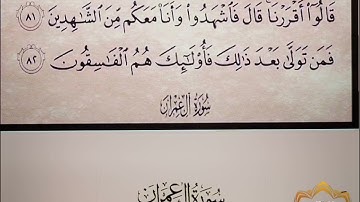 قَالُوٓا۟ أَقْرَرْنَا قَالَ فَٱشْهَدُوا۟ وَأَنَا۠ مَعَكُم مِّنَ ٱلشَّٰهِدِينَ ٨١
فَمَن تَوَلَّىٰ بَعْدَ ذَٰلِكَ فَأُو۟لَٰٓئِكَ هُمُ ٱلْفَٰسِقُونَ ٨٢
سُورَةُ آلِ عِمْرَان
سُورَةُ آلِ عِمْرَان